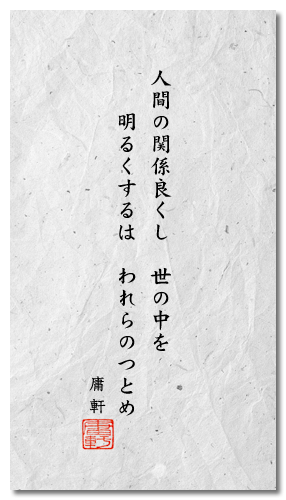 人間の関係良くし　世の中を
明るくするは　われらのつとめ
庸軒
庸軒